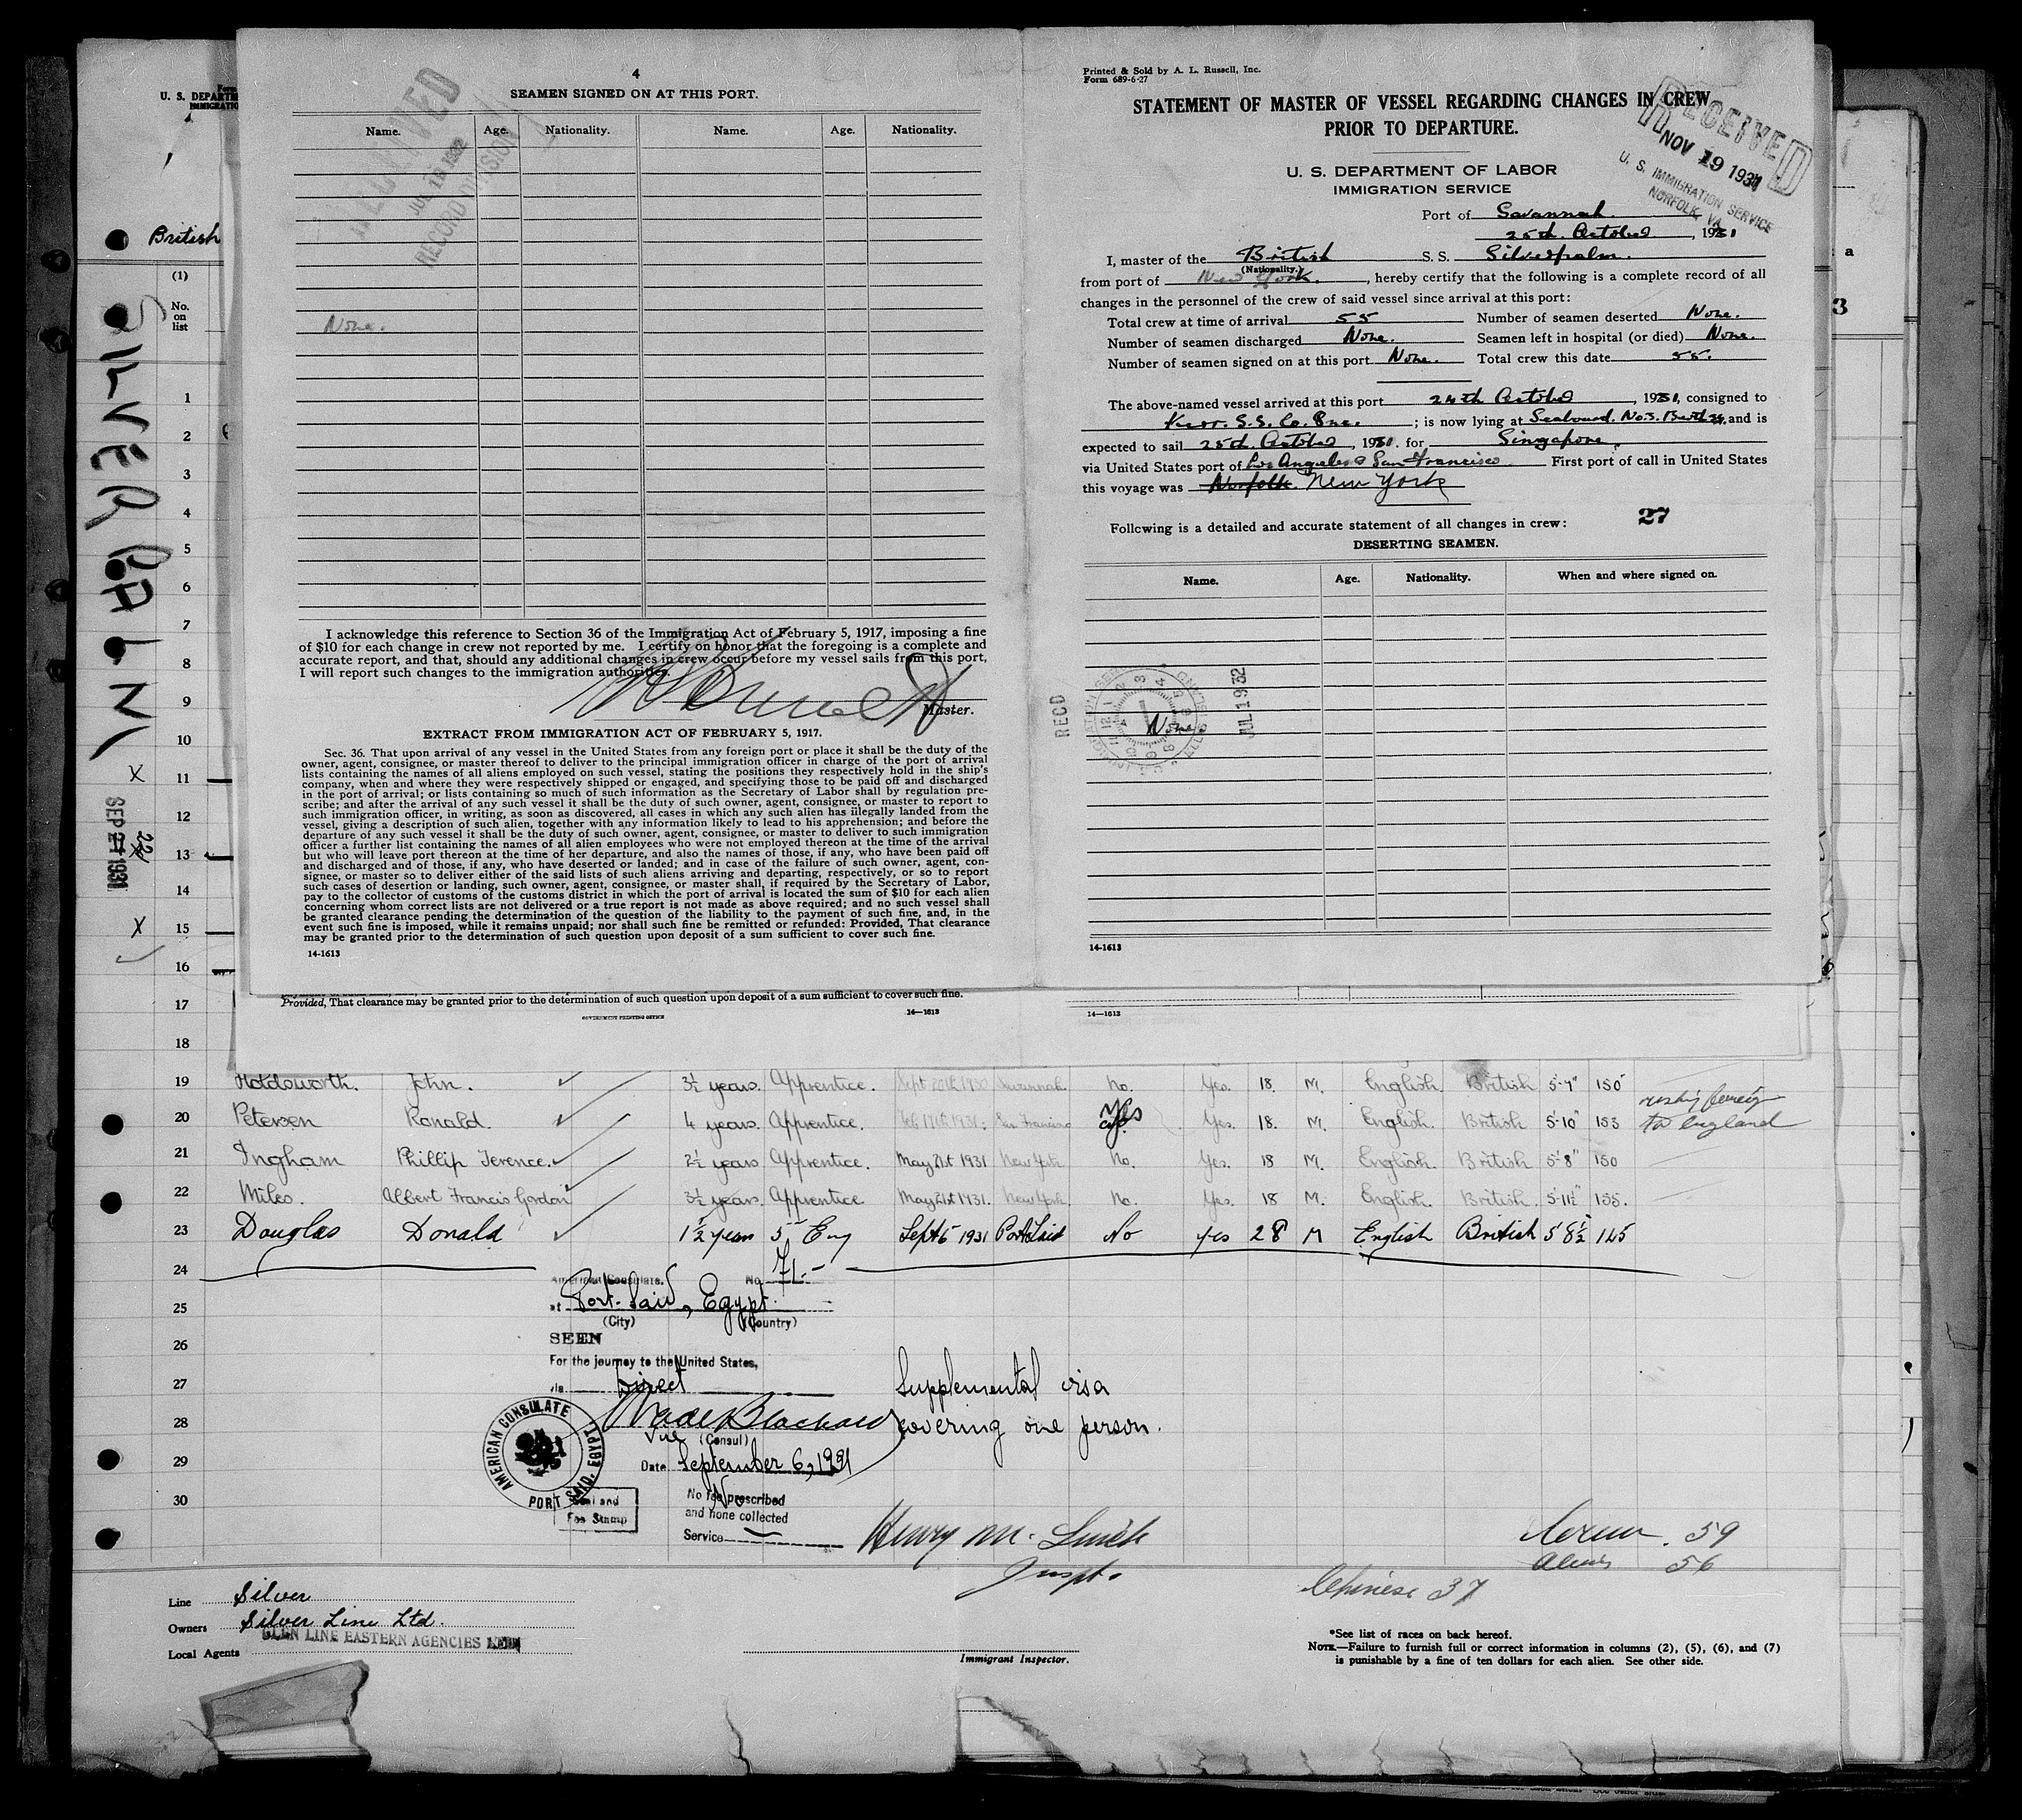 4
SEAMEN SIGNED ON AT THIS PORT.
Name. Age. Nationality. Name. Age. Nationality.
None.
I acknowledge this reference to Section 36 of the Immigration Act of February 5, 1917, imposing a fine
of $10 for each change in crew not reported by me. I certify on honor that the foregoing is a complete and
accurate report, and that, should any additional changes in crew occur before my vessel sails from this port,
I will report such changes to the immigration authorities.
Master.
EXTRACT FROM IMMIGRATION ACT OF FEBRUARY 5, 1917.
Sec. 36. That upon arrival of any vessel in the United States from any foreign port or place it shall be the duty of the
owner, agent, consignee, or master thereof to deliver to the principal immigration officer in charge of the port of arrival
lists containing the names of all aliens employed on such vessel, stating the positions they respectively hold in the ship's
company, when and where they were respectively shipped or engaged, and specifying those to be paid off and discharged
in the port of arrival; or lists containing so much of such information as the Secretary of Labor shall by regulation pre-
scribe; and after the arrival of any such vessel it shall be the duty of such owner, agent, consignee, or master to report to
such immigration officer, in writing, as soon as discovered, all cases in which any such alien has illegally landed from the
vessel, giving a description of such alien, together with any information likely to lead to his apprehension; and before the
departure of any such vessel it shall be the duty of such owner, agent, consignee, or master to deliver to such immigration
officer a further list containing the names of all alien employees who were not employed thereon at the time of the arrival
but who will leave port thereon at the time of her departure, and also the names of those, if any, who have been paid off
and discharged and of those, if any, who have deserted or landed; and in case of the failure of such owner, agent, con-
signee, or master so to deliver either of the said lists of such aliens arriving and departing, respectively, or so to report
such cases of desertion or landing, such owner, agent, consignee, or master shall, if required by the Secretary of Labor,
pay to the collector of customs of the customs district in which the port of arrival is located the sum of $10 for each alien
concerning whom correct lists are not delivered or a true report is not made as above required; and no such vessel shall
be granted clearance pending the determination of the question of the liability to the payment of such fine, and, in the
event such fine is imposed, while it remains unpaid; nor shall such fine be remitted or refunded: Provided, That clearance
may be granted prior to the determination of such question upon deposit of a sum sufficient to cover such fine.
14-1613
Printed & Sold by A. L. Russell, Inc.
Form 689-6-27
STATEMENT OF MASTER OF VESSEL REGARDING CHANGES IN CREW
PRIOR TO DEPARTURE.
U. S. DEPARTMENT OF LABOR
IMMIGRATION SERVICE
RECEIVED
NOV 19 1931
U. S. IMMIGRATION SERVICE
NORFOLK, VA.
Port of Savannah.
25th. October, 1931
I, master of the British S. S. Silverpalm.
(Nationality.)
from port of New York., hereby certify that the following is a complete record of all
changes in the personnel of the crew of said vessel since arrival at this port:
Total crew at time of arrival 55 Number of seamen deserted None.
Number of seamen discharged None. Seamen left in hospital (or died) None.
Number of seamen signed on at this port None. Total crew this date 55.
The above-named vessel arrived at this port 24th October, 1931, consigned to
Kerr. S.S. Co. Inc.; is now lying at Seaboard. No.3. Berth and is
expected to sail 25th. October, 1931. for Singapore.
via United States port of Los Angeles & San Francisco First port of call in United States
this voyage was Norfolk. New York
Following is a detailed and accurate statement of all changes in crew: 27
DESERTING SEAMEN.
Name. Age. Nationality. When and where signed on.
None
RECD JUL 1932
14-1613
British
(1)
No. on list
SILVER PALM
SEP 1931
1
2
3
4
5
6
7
8
9
10
X 11
12
13
14
X 15
16
17
18
Provided, That clearance may be granted prior to the determination of such question upon deposit of a sum sufficient to cover such fine.
GOVERNMENT PRINTING OFFICE 14—1613 14—1613
19 Holdsworth. John. 3½ years. Apprentice. Sept 20th 1930 Savannah. No. Yes. 18. M. English. British 5-7" 150
20 Petersen Ronald. 4 years. Apprentice. Feb 17th 1931. San Francisco Yes Yes. 18. M. English. British 5-10" 153 to England
21 Ingham Phillip Terence. 2½ years Apprentice. May 21st 1931 New York. No. Yes. 18 M. English. British 5-8" 150
22 Miles. Albert Francis Gordon 3½ years. Apprentice May 21st 1931. New York. No. Yes. 18 M. English. British. 5-11½" 155.
23 Douglas Donald 1½ year 5 Eng Sept 6 1931 Port Said No yes 28 M English British 5' 8½ 145
24
25
26
27
28
29
30
American Consulate. No. 71.-
at Port-Said, Egypt.
(City) (Country)
SEEN
For the journey to the United States,
via Direct
Supplemental visa
covering one person.
Vice (Consul)
Date September 6, 1931
AMERICAN CONSULATE PORT SAID, EGYPT
Seal and
Fee Stamp
No fee prescribed
and none collected
Service
Henry M. Smith
Inspt.
Crew. 59
Aliens 56
Chinese 37
Line Silver
Owners Silver Line Ltd.
Local Agents GLEN LINE EASTERN AGENCIES LTD
Immigrant Inspector.
*See list of races on back hereof.
NOTE.—Failure to furnish full or correct information in columns (2), (5), (6), and (7)
is punishable by a fine of ten dollars for each alien. See other side.